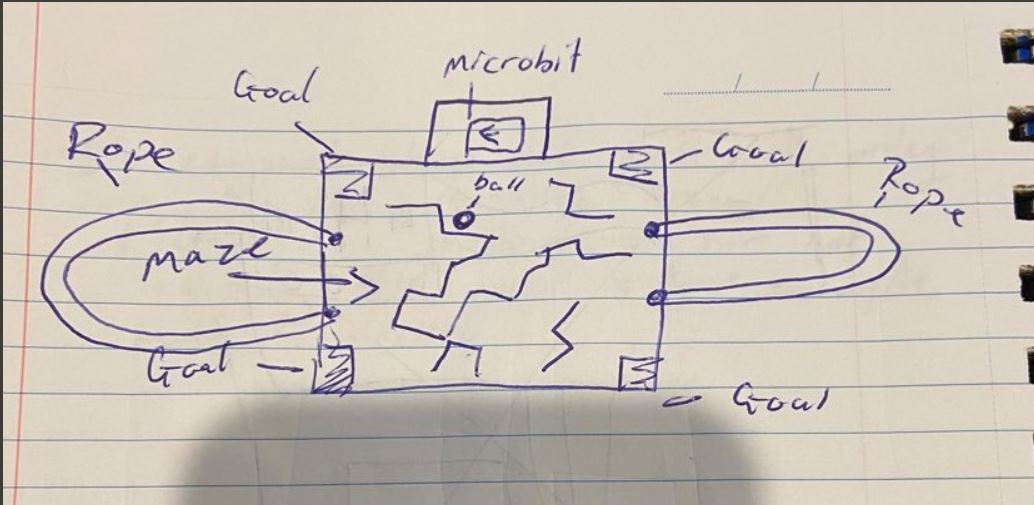 microbit
Goal
Rope
Goal
ball
Rope
maze
Goal
Goal